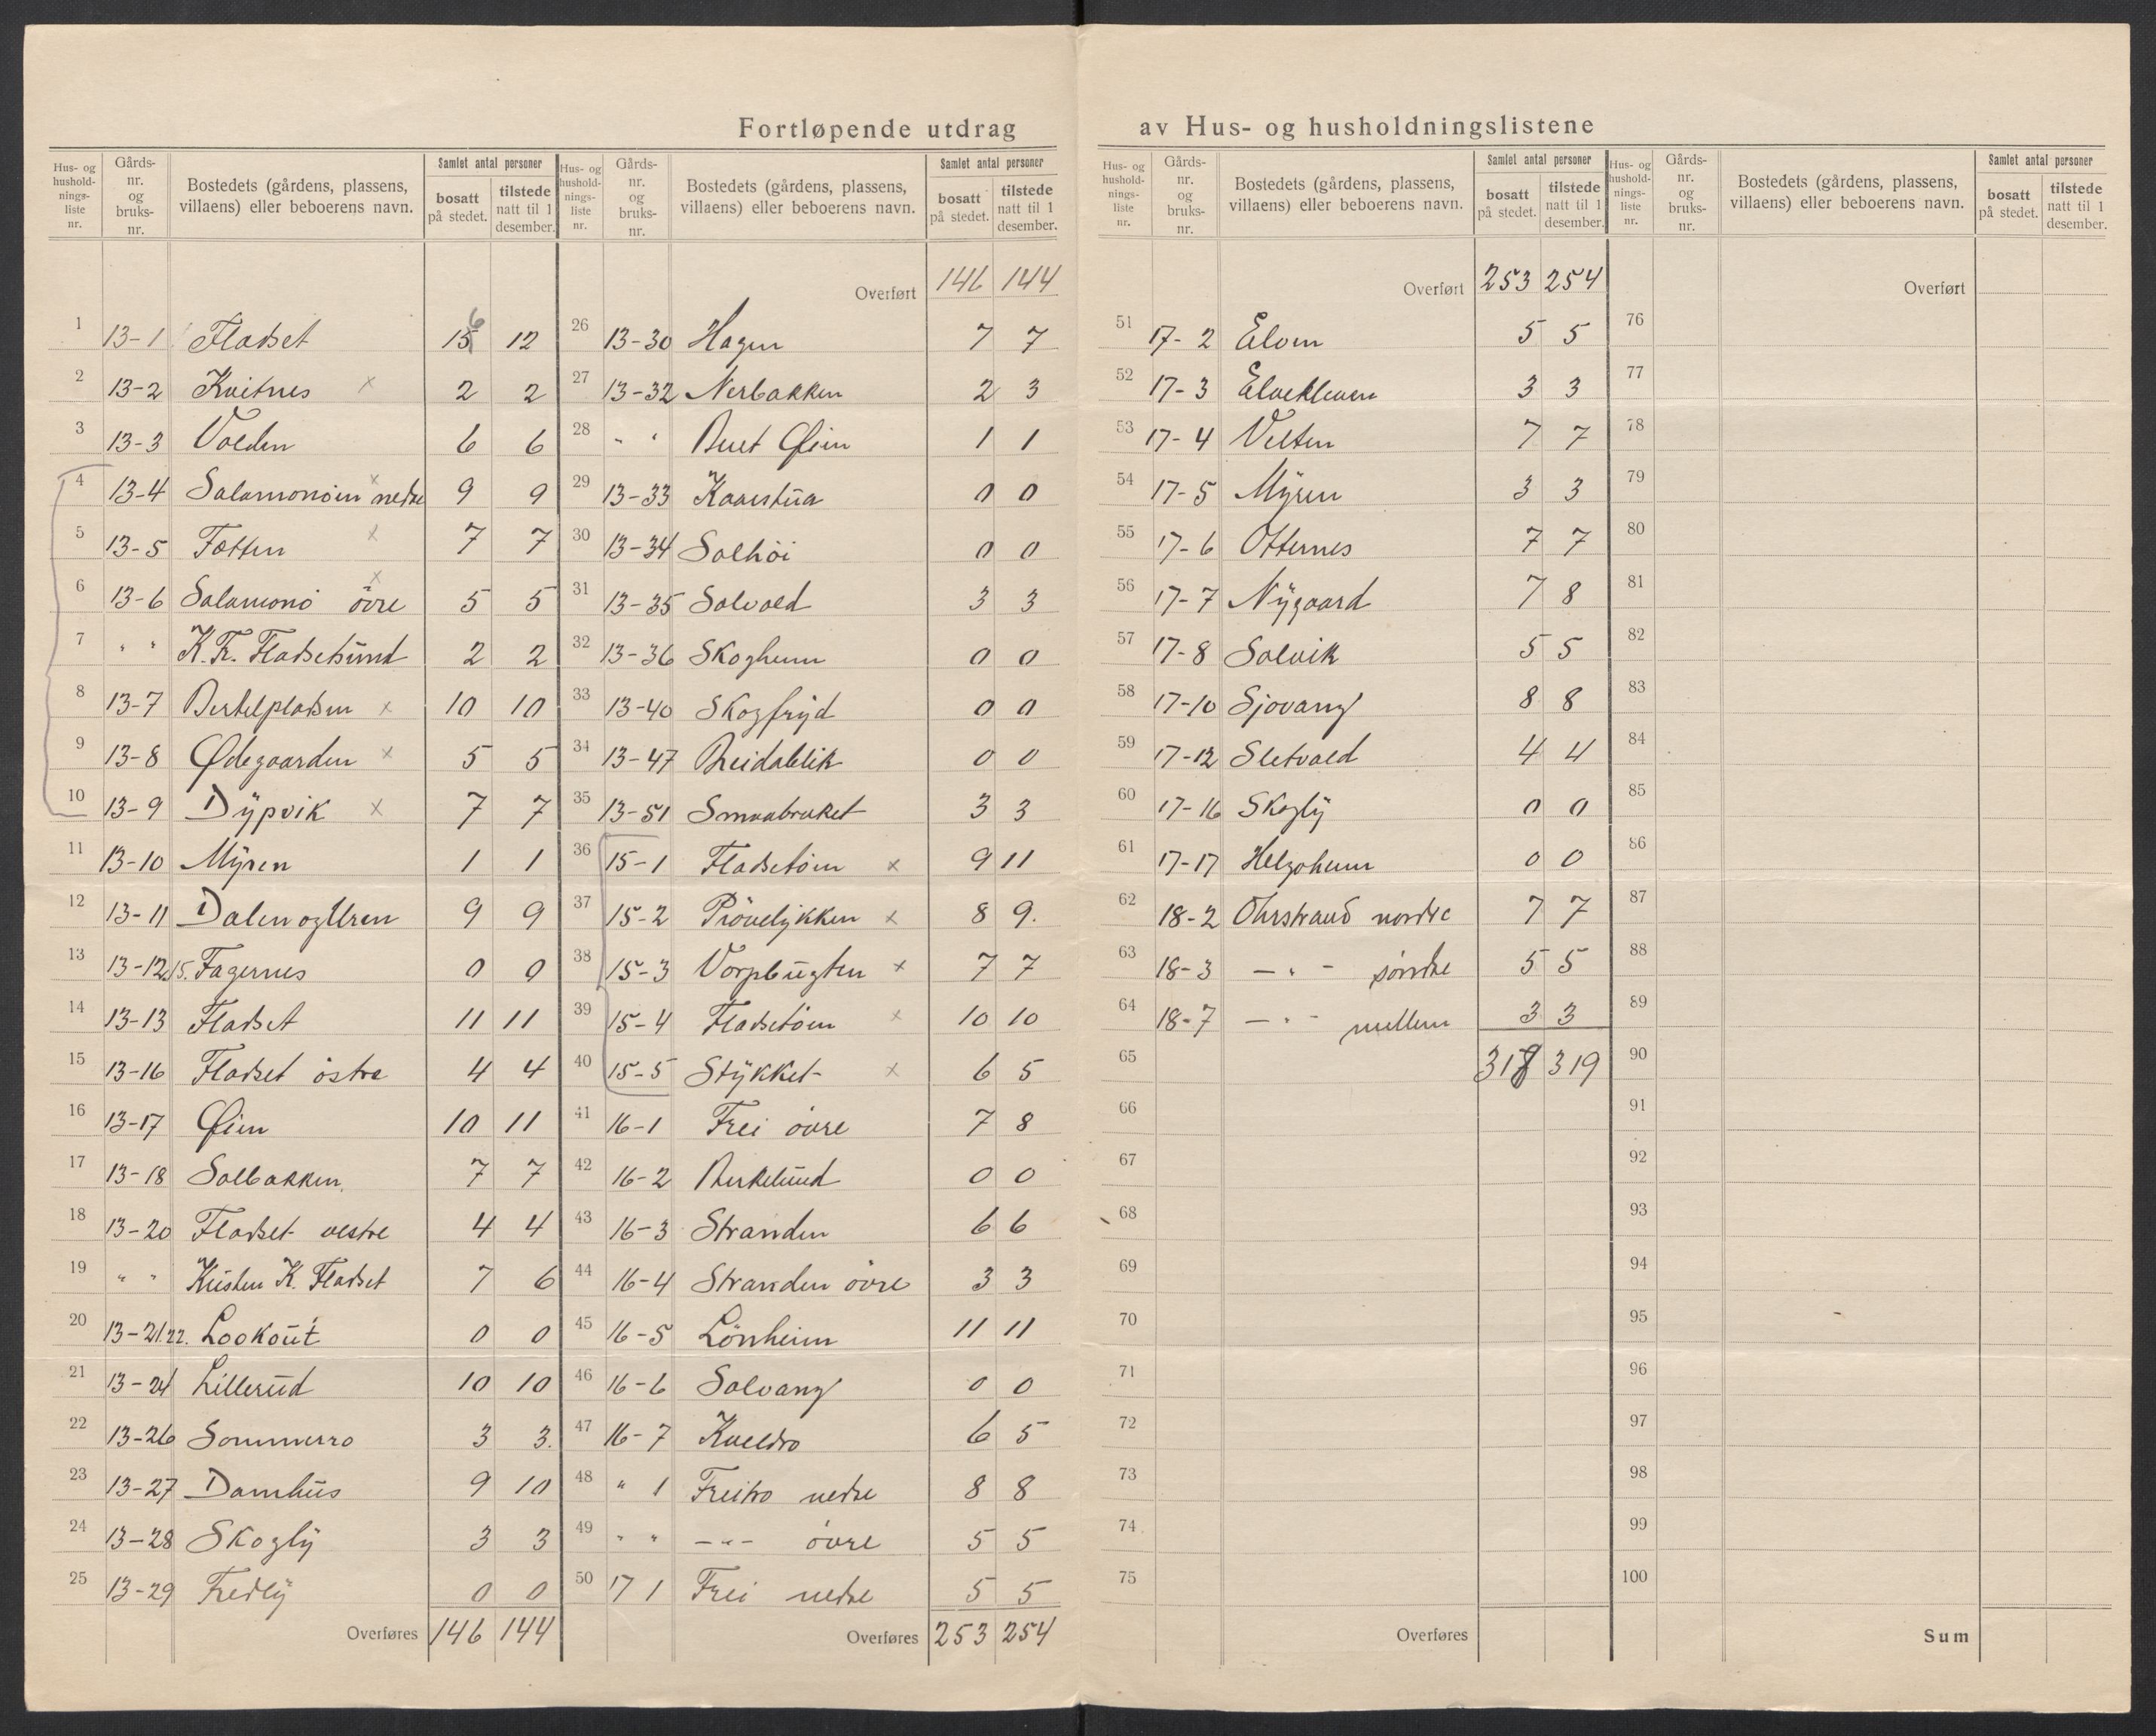 Fortløpende utdrag av Hus- og husholdningslistene
Hus- og husholdningsliste nr. | Gårdsnr. og bruksnr. | Bostedets (gårdens, plassens, villaens) eller beboerens navn. | Samlet antal personer bosatt på stedet. | tilstede natt til 1 desember.
1 13-1 Fladset 15 6 12
2 13-2 Kvitnes x 2 2
3 13-3 Volden 6 6
4 13-4 Salamonöien nedre x 9 9
5 13-5 Totten x 7 7
6 13-6 Salamonö övre x 5 5
7 " " K. Fr. Fladsetsund 2 2
8 13-7 Bertelpladsen x 10 10
9 13-8 Ødegaarden x 5 5
10 13-9 Dypvik x 7 7
11 13-10 Myren 1 1
12 13-11 Dalen og Uren 9 9
13 13-12,15. Fagernes 0 0
14 13-13 Fladset 11 11
15 13-16 Fladset östre 4 4
16 13-17 Øien 10 11
17 13-18 Solbakken 7 7
18 13-20 Fladset vestre 4 4
19 " " Kristen K. Fladset 7 6
20 13-21.22. Lookout 0 0
21 13-24 Lillerud 10 10
22 13-26 Sommerro 3 3.
23 13-27 Damhus 9 10
24 13-28 Skogly 3 3
25 13-29 Fredly 0 0
Overføres 146 144
Hus- og husholdningsliste nr. | Gårdsnr. og bruksnr. | Bostedets (gårdens, plassens, villaens) eller beboerens navn. | Samlet antal personer bosatt på stedet. | tilstede natt til 1 desember.
Overført 146 144
26 13-30 Hagen 7 7
27 13-32 Nerbakken 2 3
28 " " Beret Øien 1 1
29 13-33 Kaarstua 0 0
30 13-34 Solhöi 0 0
31 13-35 Solvold 3 3
32 13-36 Skogheim 0 0
33 13-40 Skogfryd 0 0
34 13-47 Breidablik 0 0
35 13-51 Smaabruket 3 3
36 15-1 Fladsetöien x 9 11
37 15-2 Prövelykken x 8 9.
38 15-3 Vorpbugten x 7 7
39 15-4 Fladsetöien x 10 10
40 15-5 Stykket x 6 5
41 16-1 Frei övre 7 8
42 16-2 Birkelund 0 0
43 16-3 Stranden 6 6
44 16-4 Stranden övre 3 3
45 16-5 Lönheim 11 11
46 16-6 Solvang 0 0
47 16-7 Kveldro 6 5
48 " 1 Freitro nedre 8 8
49 " " -"- övre 5 5
50 17 1 Frei nedre 5 5
Overføres 253 254
Hus- og husholdningsliste nr. | Gårdsnr. og bruksnr. | Bostedets (gårdens, plassens, villaens) eller beboerens navn. | Samlet antal personer bosatt på stedet. | tilstede natt til 1 desember.
Overført 253 254
51 17-2 Elven 5 5
52 17-3 Elvekleven 3 3
53 17-4 Velten 7 7
54 17-5 Myren 3 3
55 17-6 Otternes 7 7
56 17-7 Nygaard 7 8
57 17-8 Solvik 5 5
58 17-10 Sjovang 8 8
59 17-12 Sletvold 4 4
60 17-16 Skogly 0 0
61 17-17 Helgoheim 0 0
62 18-2 Ohrstrand nordre 7 7
63 18-3 -"- söndre 5 5
64 18-7 -"- mellem 3 3
65 318 319
66
67
68
69
70
71
72
73
74
75
Overføres
Hus- og husholdningsliste nr. | Gårdsnr. og bruksnr. | Bostedets (gårdens, plassens, villaens) eller beboerens navn. | Samlet antal personer bosatt på stedet. | tilstede natt til 1 desember.
Overført
76
77
78
79
80
81
82
83
84
85
86
87
88
89
90
91
92
93
94
95
96
97
98
99
100
Sum